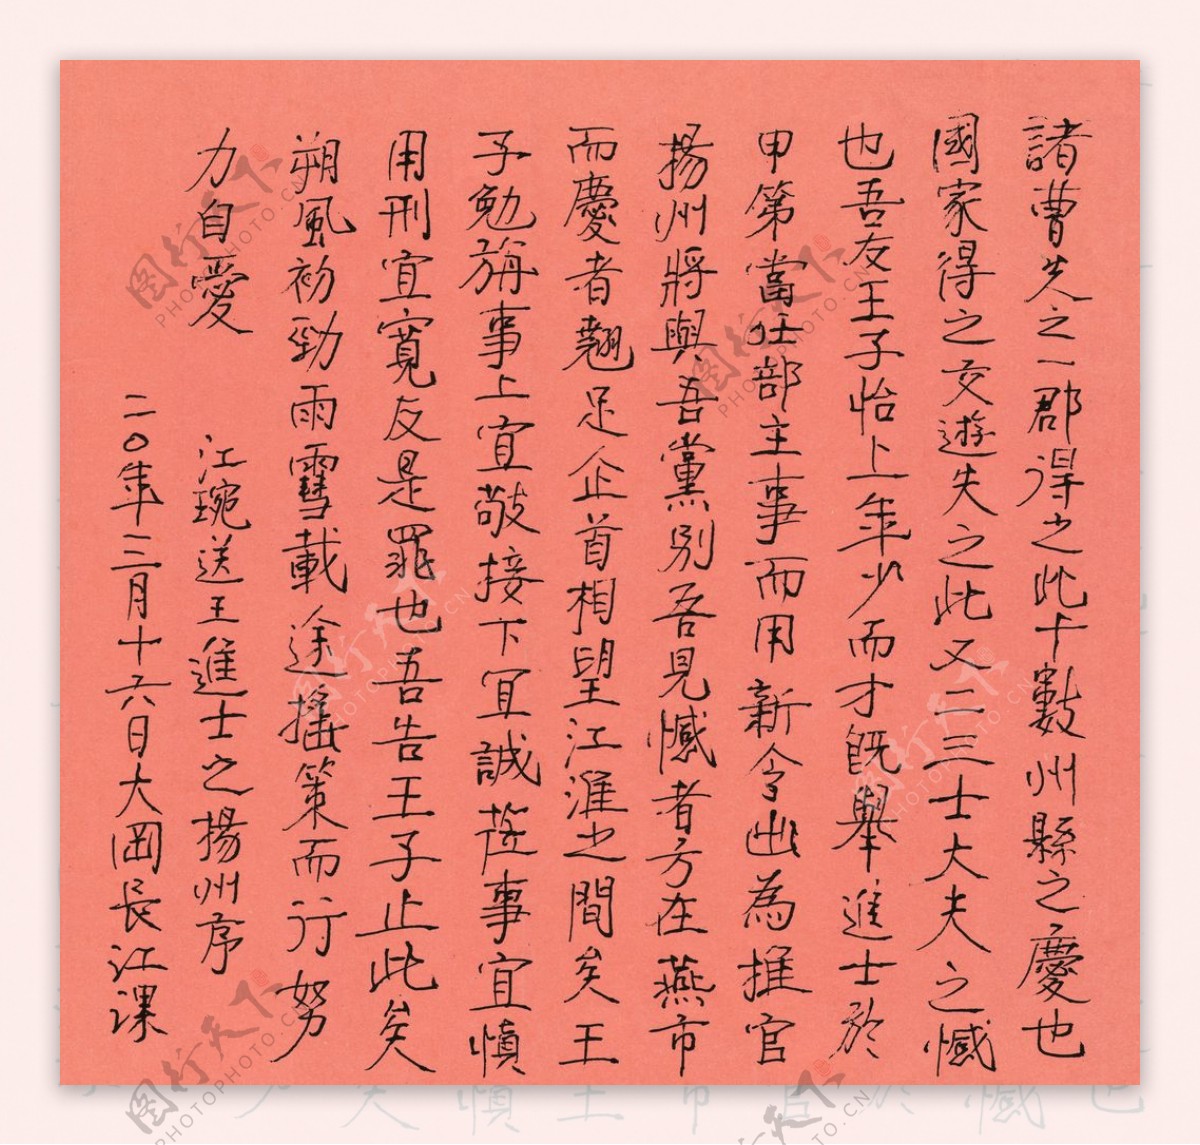 諸曹失之一郡得之此十數州縣之慶也
國家得之交遊失之此又二三士大夫之憾
也吾友王子怡上年少而才既舉進士於
甲第當仕部主事而用新令出為推官
揚州將與吾黨別吾見憾者方在燕市
而慶者翹足企首相望江淮之間矣王
子勉旃事上宜敬接下宜誠蒞事宜慎
用刑宜寬反是罪也吾告王子止此矣
朔風初勁雨雪載途搖策而行努
力自愛
江琬送王進士之揚州序
二〇年三月十六日大岡長江課
图行天下
PHOTOPHOTO.CN